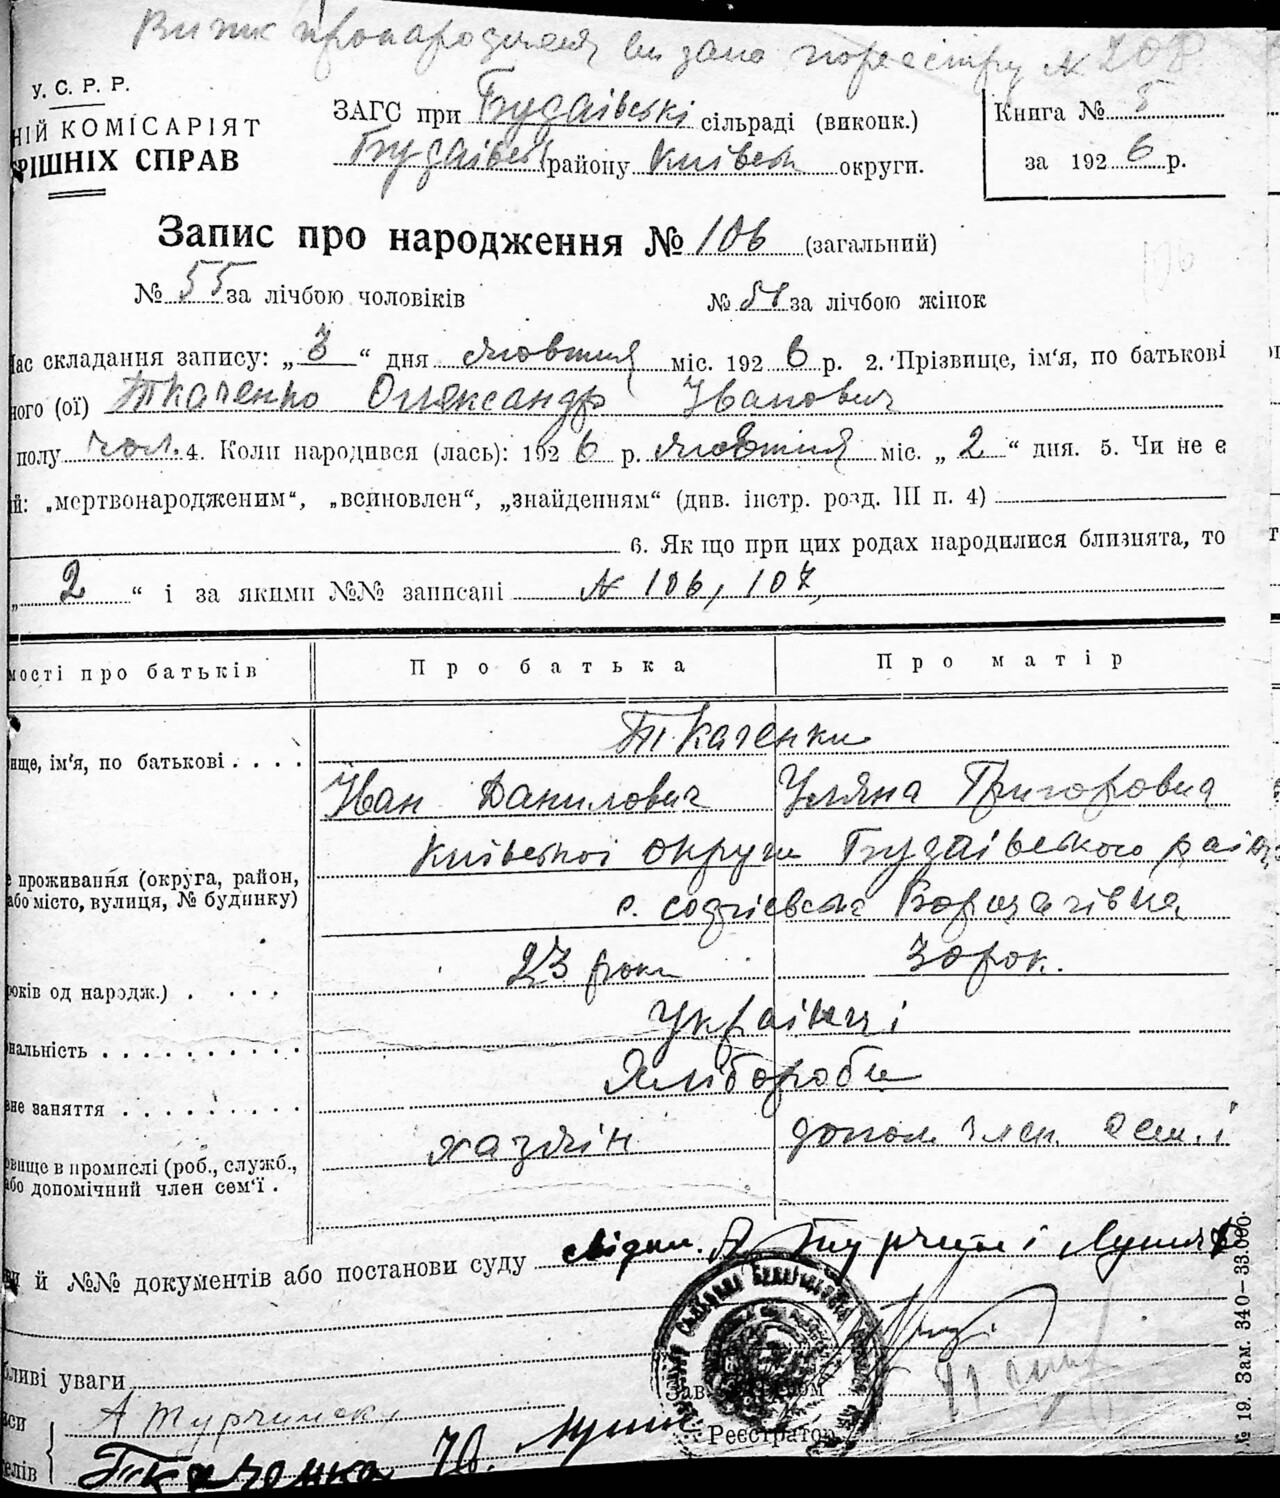 Випис про народження видано по реєстру № 208
У. С. Р. Р.
НІЙ КОМІСАРІЯТ
РІШНІХ СПРАВ
ЗАГС при Будаївські сільраді (викопк.)
Будаївськ району Київськ округи.
Книга № 5
за 1926 р.
Запис про народження № 106 (загальний)
106
№ 55 за лічбою чоловіків № 51 за лічбою жінок
Час складання запису: „3“ дня жовтня міс. 1926 р. 2. Прізвище, ім'я, по батькові
ного (ої) Ткаченко Олександр Іванович
полу чол. 4. Коли народився (лась): 1926 р. жовтня міс. „2“ дня. 5. Чи не є
й: „мертвонародженим“, „всиновлен“, „знайденням“ (див. інстр. розд. III п. 4)
6. Як що при цих родах народилися близнята, то
„2“ і за якими №№ записані № 106, 107,
мості про батьків Про батька Про матір
Ткаченки
ище, ім'я, по батькові . . . .
Іван Данилович Уляна Григоровна
Київської округи Будаівського раіо
е проживання (округа, район,
або місто, вулиця, № будинку)
с. Софіевська Борщагівка
23 роки 30 рок.
років од народж.) . . . .
Українці
нальність . . . . . . . . . .
Хлібороби
вне заняття . . . . . . . . .
хазяїн допом. член семї
овище в промислі (роб., служб.,
або допомічний член сем'ї .
й №№ документів або постанови суду свідки. А Турчин і
бливі уваги
Зав.
А Турчинськ
Реєстратор
Ткаченко
№ 19. Зам. 340—33.000.